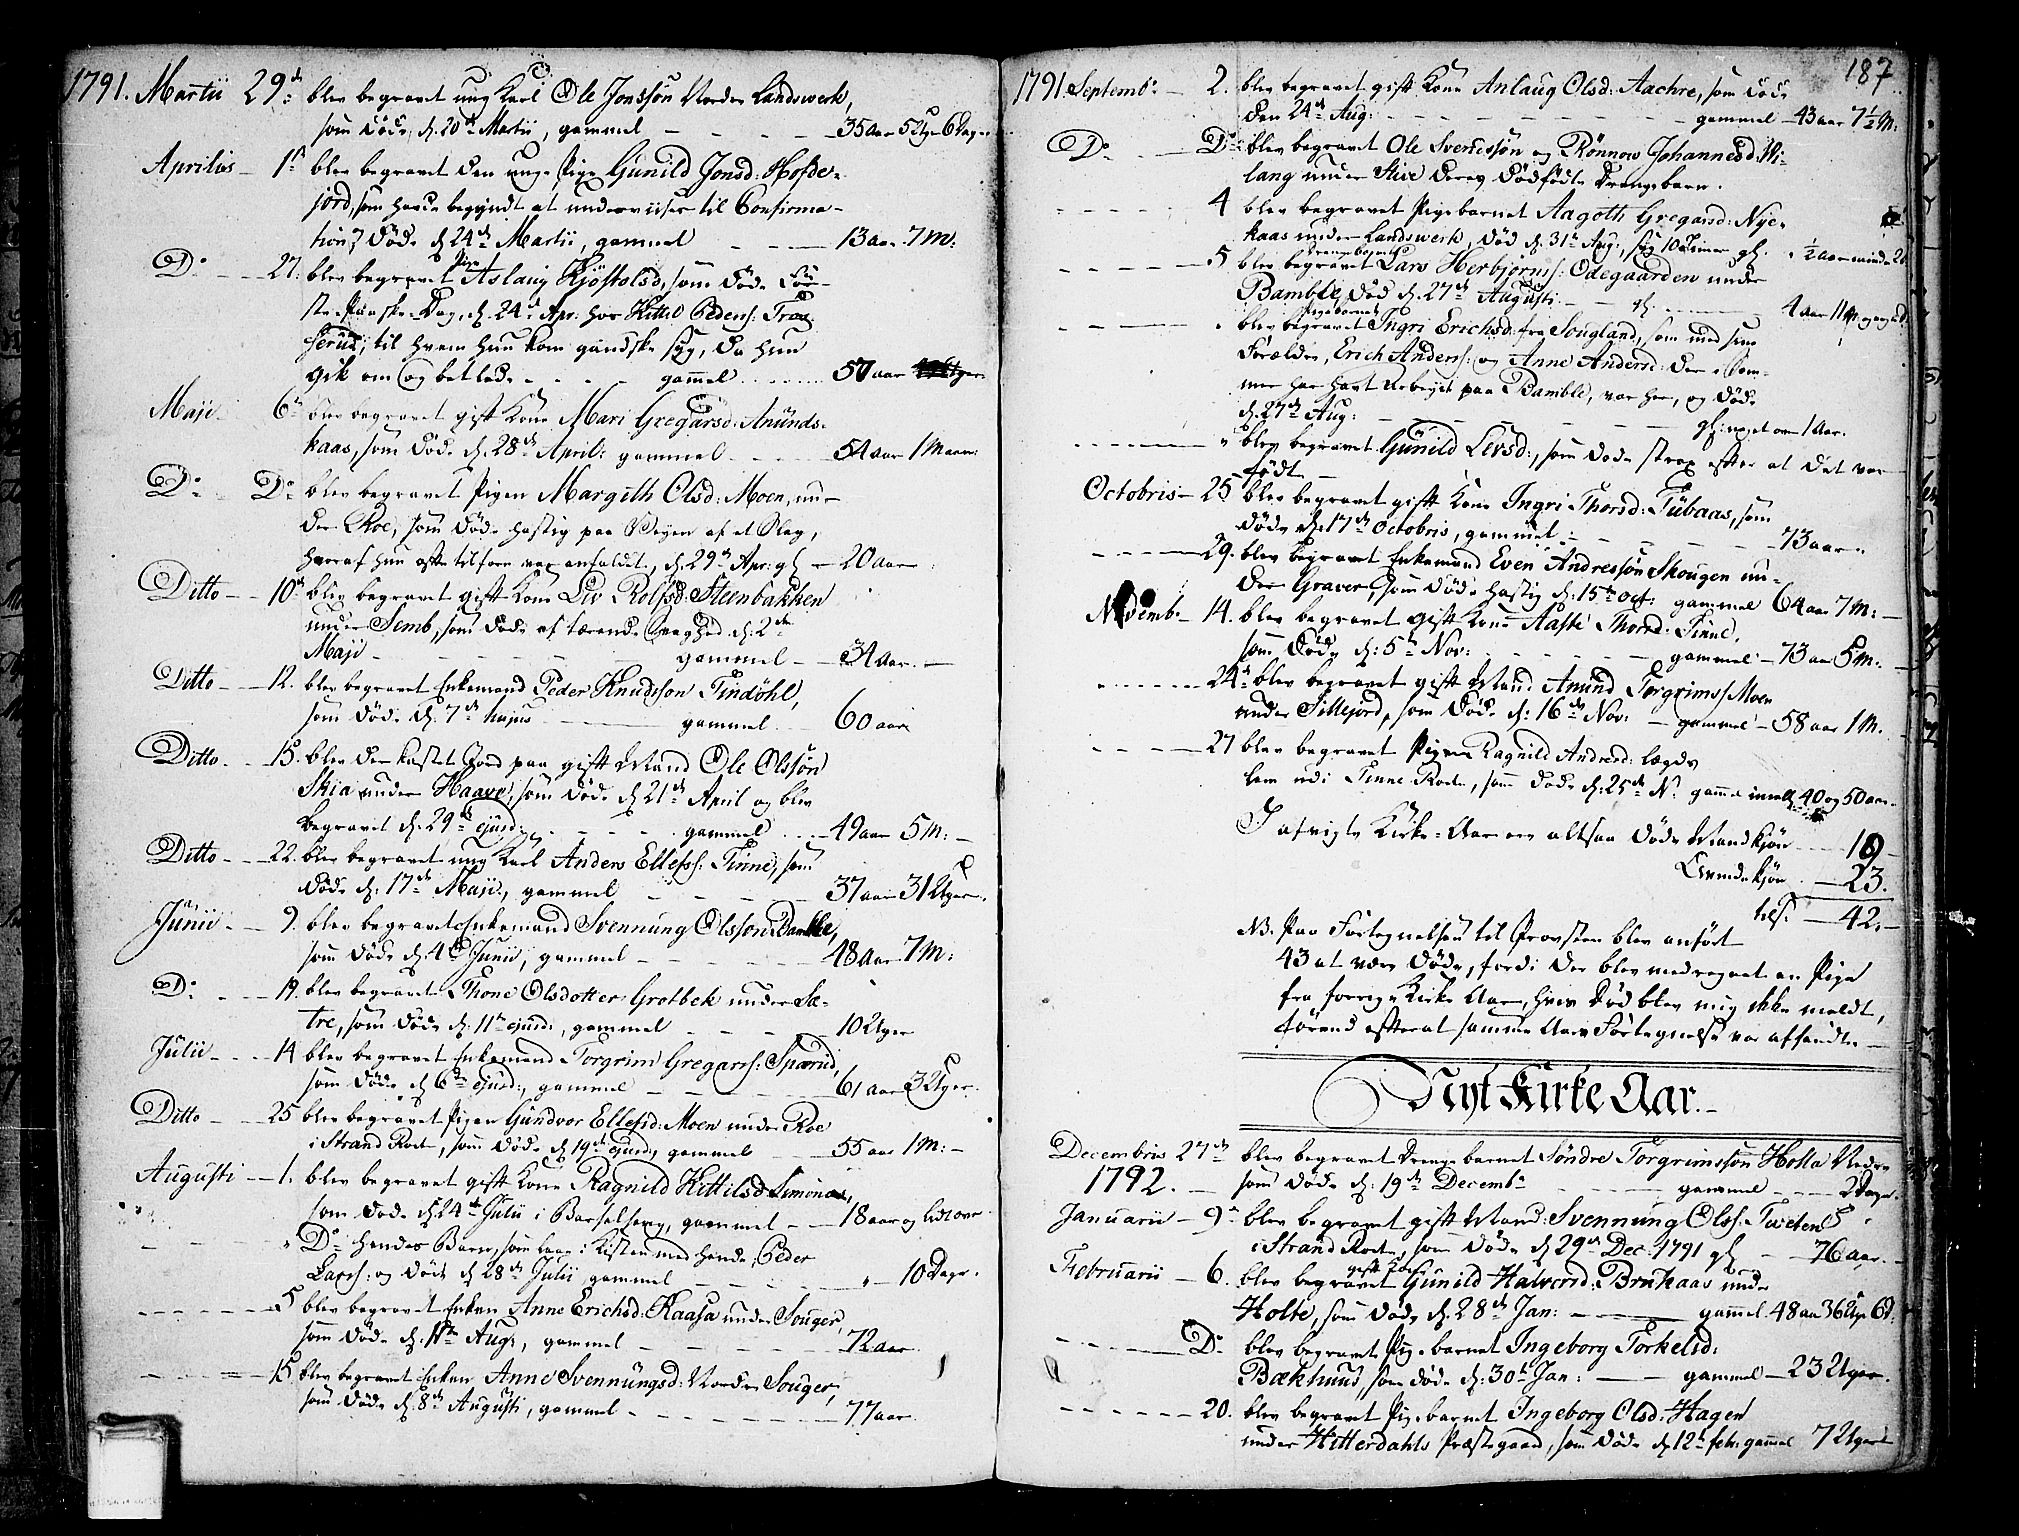 1791. Martii 29de blev begravet ung Karl Ole Jonssøn Nordre Landswerk,
som døde d. 20de Martii, gammel - - - 35 Aar 5 Uger 6 Dage
Aprilis - 1te blev begravet den unge Pige Gunild Jonsd: Hofde-
jord, som havde begyndt at underviises til Confirma-
tion, døde d 24de Martii, gammel - - - 13 aar 7 M:
Do - - - 27. blev begravet Pige Aslaug Kjøstolsd, som døde før-
ste Paaske-Dag, d. 24de Apr: hos Kittel Pedens:
til hvem hun kom gandske syg, da hun
gik om og betlede - - - gammel - - - 57 aar
Maji 6te blev begravet gift Kone Mari Gregarsd: Anunds-
kaas, som døde d. 28de April: gammel - - 54 aar 1 Maan:
Do - Do - blev begravet Pigen Margith Olsd: Moen, un-
der Roe, som døde hastig paa Veyen af et Slag,
hvoraf hun ofte tilforn var anfaldet, d. 29de Apr: gl - 20 aar
Ditto - - 10de blev begravet gift Kone Liv Rolfsd: Steenbakken
under Semb, som døde af tærende Svaghed d: 2den
Maji - - - gammel - - 34 Aar. -
Ditto - - 12. blev begravet Enkemand Peder Knudsson Tindøhl,
som døde d. 7de hujus - - gammel - 60 aar
Ditto - - 15. blev der kastet Jord paa gift Mand Ole Olssøn
Skia under Haave, som døde d 21de April og blev
begravet d. 29de ejusd: - - - gammel - - 49 aar 5 M: -
Ditto - - 22. blev begravet ung Karl Anders Ellefss: Tinne, som
døde d. 17de Maji, gammel - - - 37 aar 31 Uger.
Junii - - 9. blev begravet Enkemand Svennung Olsson Bamble,
som døde d. 4de Junii, gammel - - - 48 Aar 7 M:
Do - - - 19. blev begravet Thone Olsdotter Grotbek under Sæ-
tre, som døde d. 11te ejusd:, gammel - - - 10 Uger
Julii - - - 14 blev begravet Enkemand Torgrim Gregarss: Sparud,
som døde d 6te ejusd:, gammel - - - 61 aar 3 Uger.
Ditto - - - 25 blev begravet Pigen Gundvor Ellefsd: Moen under Roe
i Strand Roten, som døde d 19de ejusd, gammel - - 55 aar 1 M: -
Augusti - - 1. blev begravet gift Kone Ragnild Kittilsd
som døde d. 24de Julii i Barselseng, gammel - - 18 aar og lidt over
" Do hendes Barn, som laae i Kisten med hende, Peder
Larss: og døde d 28de Julii, gammel - - " - 10 Dage.
- - - 5 blev begravet Enken Anne Erichsd: Kaasa under Souger,
som døde d. 1te Aug:, gammel - - - 72 aar
- - - 15. blev begravet Enken Anne Svennungsd: Nordre Souger,
som døde d. 8de Augusti, gammel - - - 77 aar.
187
1791 Septembr - 2. blev begravet gift Kone Anlaug Olsd: Aachre, som døde
den 24de Aug: - - - gammel - 43 aar 7 ½ M:
Do - - - Do blev begravet Ole Svendssøn og Rönnow Johannesd: Mi-
lang under Skive deres dødfødte Drengebarn.
- - - 4 blev begravet Pigebarnet Aagoth Gregarsd: Nye-
kaas under Landswerk, død d. 31te Aug:, syg 10 Timer gl. ½ Aar mindre
Drengebarnet
- - - 5 blev begravet Lars Herbjørns: Odegaarden under
Bamble, død d. 27de Augusti - - gl: - - 4 Aar 11 M
Pigebarnet
- - - " blev begravet Ingri Erichsd: fra Sougland, som med sine
Forældre, Erich Anderss: og Anne Andersd: der i Som-
mer har havt Arbeyde paa Bamble, var her, og døde
d. 27de Aug: - - - gl: noget over 1 Aar.
- - - " blev begravet Gunild Levsd:, som døde strax efter at det var
født -
Octobris - 25 blev begravet gift Kone Ingri Thorsd: Tubaas, som
døde d. 17de Octobris, gammel - - - 73 aar
- - - 29. blev begravet Enkemand Even Andressøn Skougen un-
der Graver, som døde hastig d: 15de Oct: gammel 64 aar 7 M: -
Novembr - 14. blev begravet gift Kone Aaste Thorsd: Tinne,
som døde d: 5te Nov: - - - gammel - 73 aar 5 M. -
- - - 24de blev begravet gift Mand Anund Torgrimss: Moen
under Sillejord, som døde d: 16de Nov: - gammel - 58 aar 1 M. -
- - - 27 blev begravet Pigen Ragnild Andersd: lægds
lem udi Tinne Roden, som døde d: 25de N: gammel imell 40 og 50 aar.
I afvigte Kirke-Aar ere altsaa døde Mandkjøn - - 19
Qvindekjøn - - 23.
tils: - 42. -
NB. Paa Fortegnelsen til Provsten blev anført
43 at være døde, fordi der blev medregnet en Pige
fra forrige Kirke Aar, hvis Død blev mig ikke meldt,
førend efterat samme Aars Fortegnelse var affsendt. -
Nyt Kirke Aar. -
Decembris 27de blev begravet Drengebarnet Søndre Torgrimssøn Holta Nedre
1792. - som døde d. 19de Decembr - - gammel - - - 2 Dage.
Januarii - 9de blev begravet gift Mand: Svennung Olss: Tveten
i Strand Roden, som døde d 29de Dec: 1791 gl - - 76 aar.
gift Kone
Februarii - 6. blev begravet Gunild Halversd: Brukaas under
Holte, som døde d. 28de Jan: - - gammel 48 aar 36 Uger 6 D:
- - - Do blev begravet Pigebarnet Ingeborg Torkelsd:
Bækhuus, som døde d. 30te Jan: - - gammel - 23 Uger.
- - - 20. blev begravet Pigebarnet Ingeborg Olsd: Hagen
under Hitterdahls Præstegaard, som døde d 12te febr: gammel 7 Uger